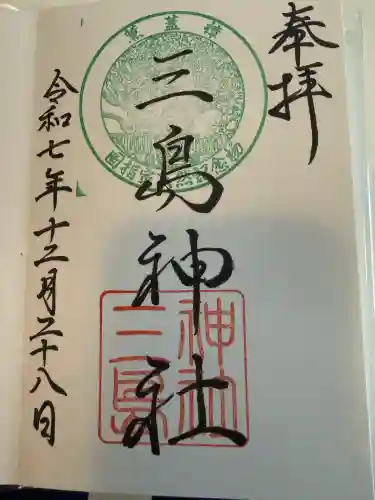 奉拝
三島神社
令和七年十二月二十八日
三島神社